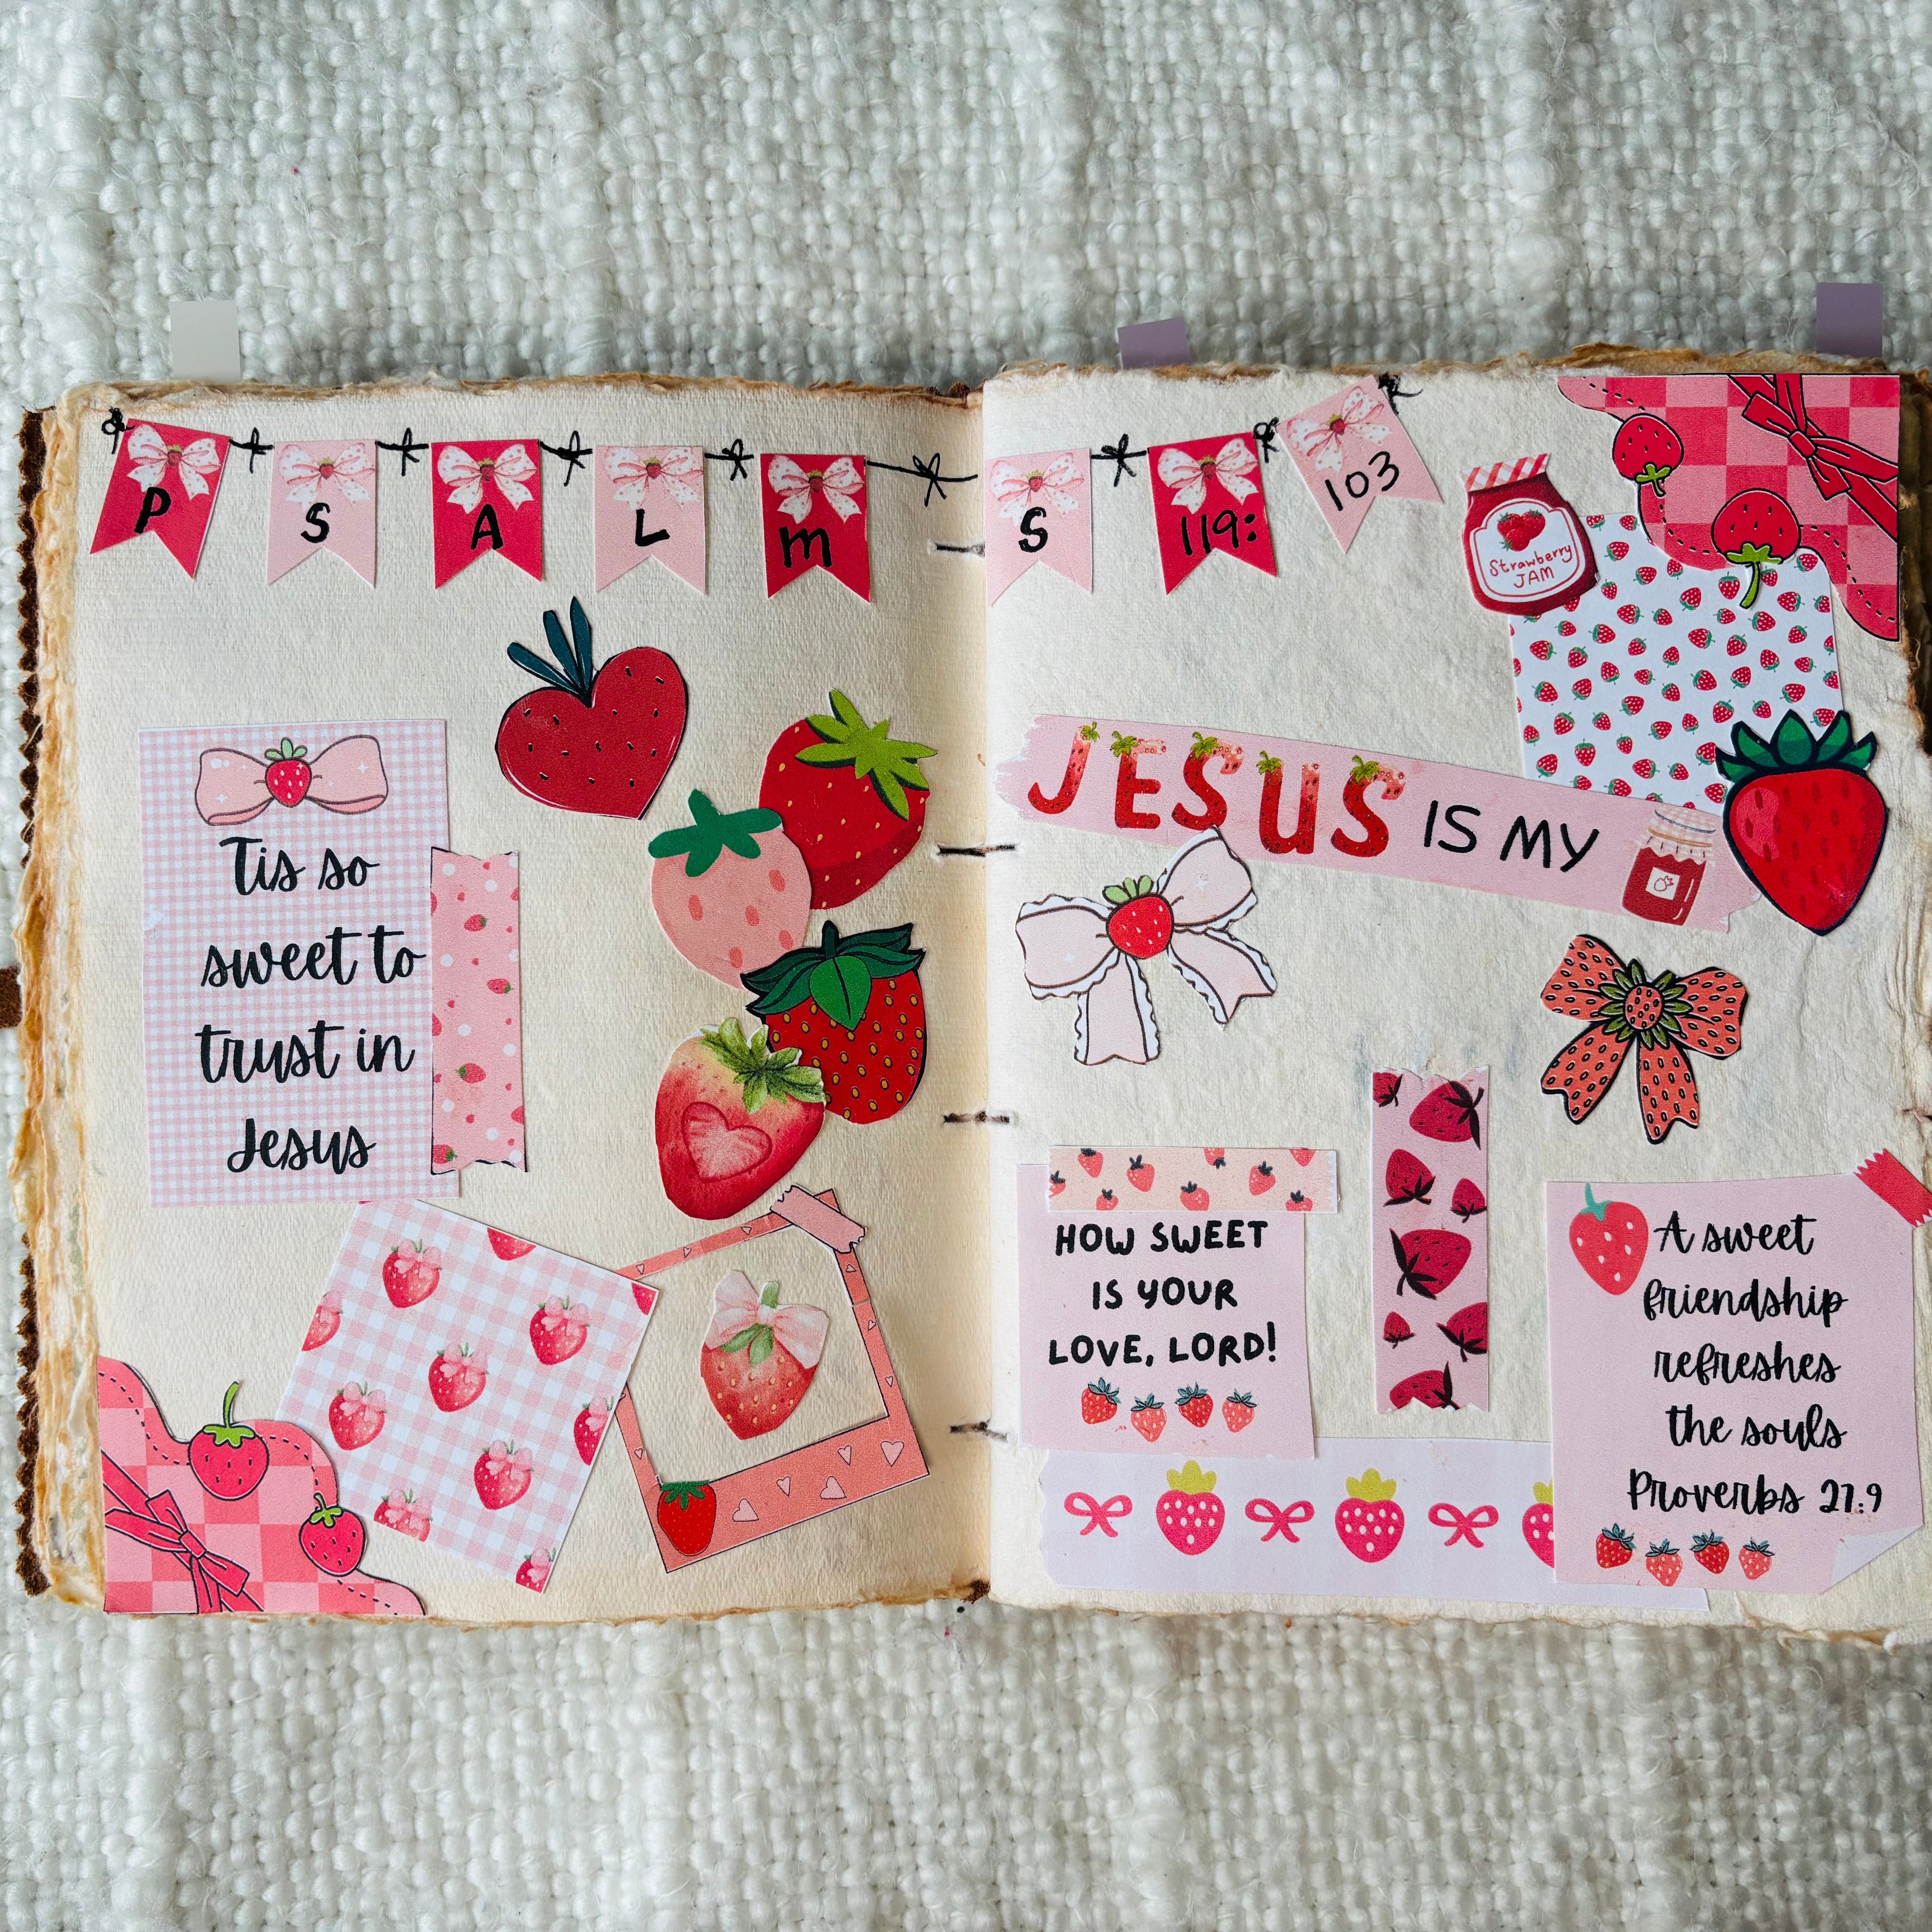 PSALMS 119: 103
Strawberry
JAM
Tis so
sweet to
trust in
Jesus
JESUS IS MY
HOW SWEET
IS YOUR
LOVE, LORD!
A sweet
friendship
refreshes
the souls
Proverbs 27:9